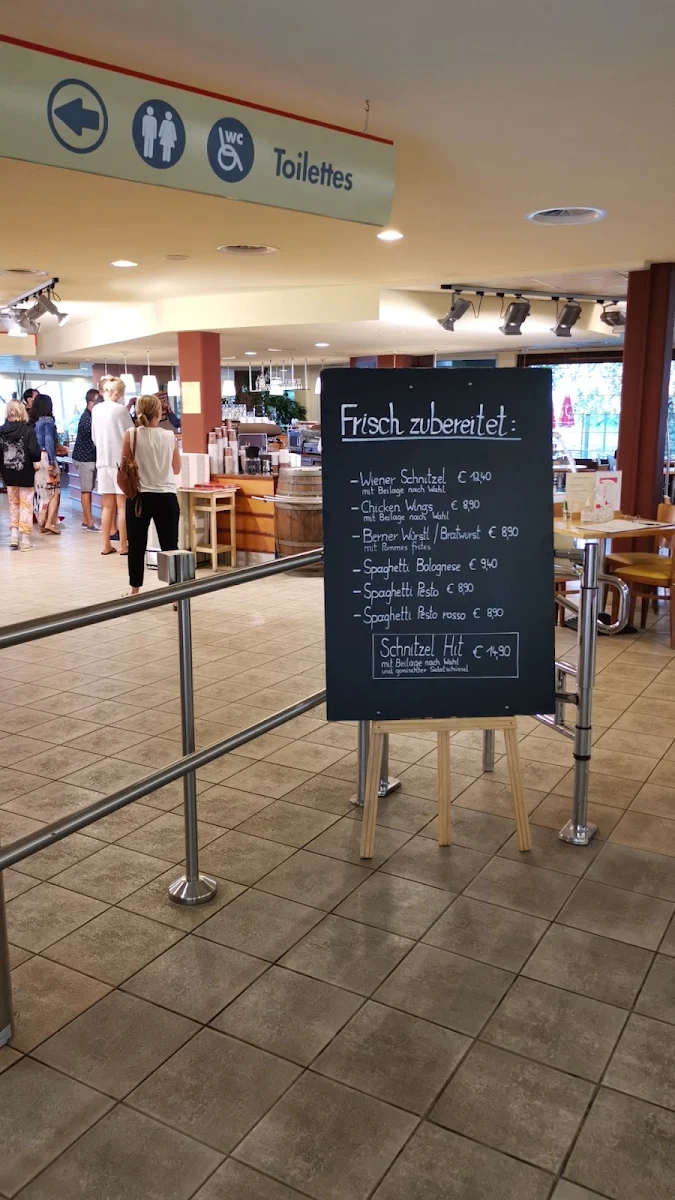 WC
Toilettes
Frisch zubereitet:
- Wiener Schnitzel € 12,40
mit Beilage nach Wahl
- Chicken Wings € 8,90
mit Beilage nach Wahl
- Berner Würstl / Bratwurst € 8,90
mit Pommes frites
- Spaghetti Bolognese € 9,40
- Spaghetti Pesto € 8,90
- Spaghetti Pesto rosso € 8,90
Schnitzel Hit € 14,90
mit Beilage nach Wahl
und gemischter Salatschüssel